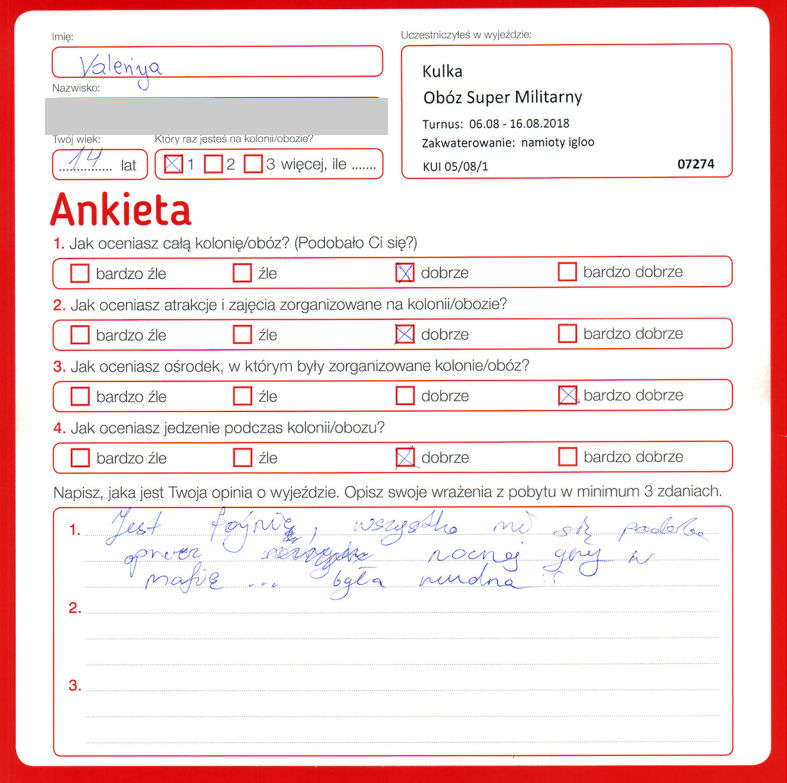 Imię:
Valeriya
Nazwisko:
Twój wiek: Który raz jesteś na kolonii/obozie?
14 lat 1 2 3 więcej, ile .......
Uczestniczyłeś w wyjeździe:
Kulka
Obóz Super Militarny
Turnus: 06.08 - 16.08.2018
Zakwaterowanie: namioty igloo
KUI 05/08/1 07274
Ankieta
1. Jak oceniasz całą kolonię/obóz? (Podobało Ci się?)
bardzo źle źle dobrze bardzo dobrze
2. Jak oceniasz atrakcje i zajęcia zorganizowane na kolonii/obozie?
bardzo źle źle dobrze bardzo dobrze
3. Jak oceniasz ośrodek, w którym były zorganizowane kolonie/obóz?
bardzo źle źle dobrze bardzo dobrze
4. Jak oceniasz jedzenie podczas kolonii/obozu?
bardzo źle źle dobrze bardzo dobrze
Napisz, jaka jest Twoja opinia o wyjeździe. Opisz swoje wrażenia z pobytu w minimum 3 zdaniach.
1. Jest fajnie, wszystko mi się
nocnej gry w
mafię ... była nudna
2.
3.